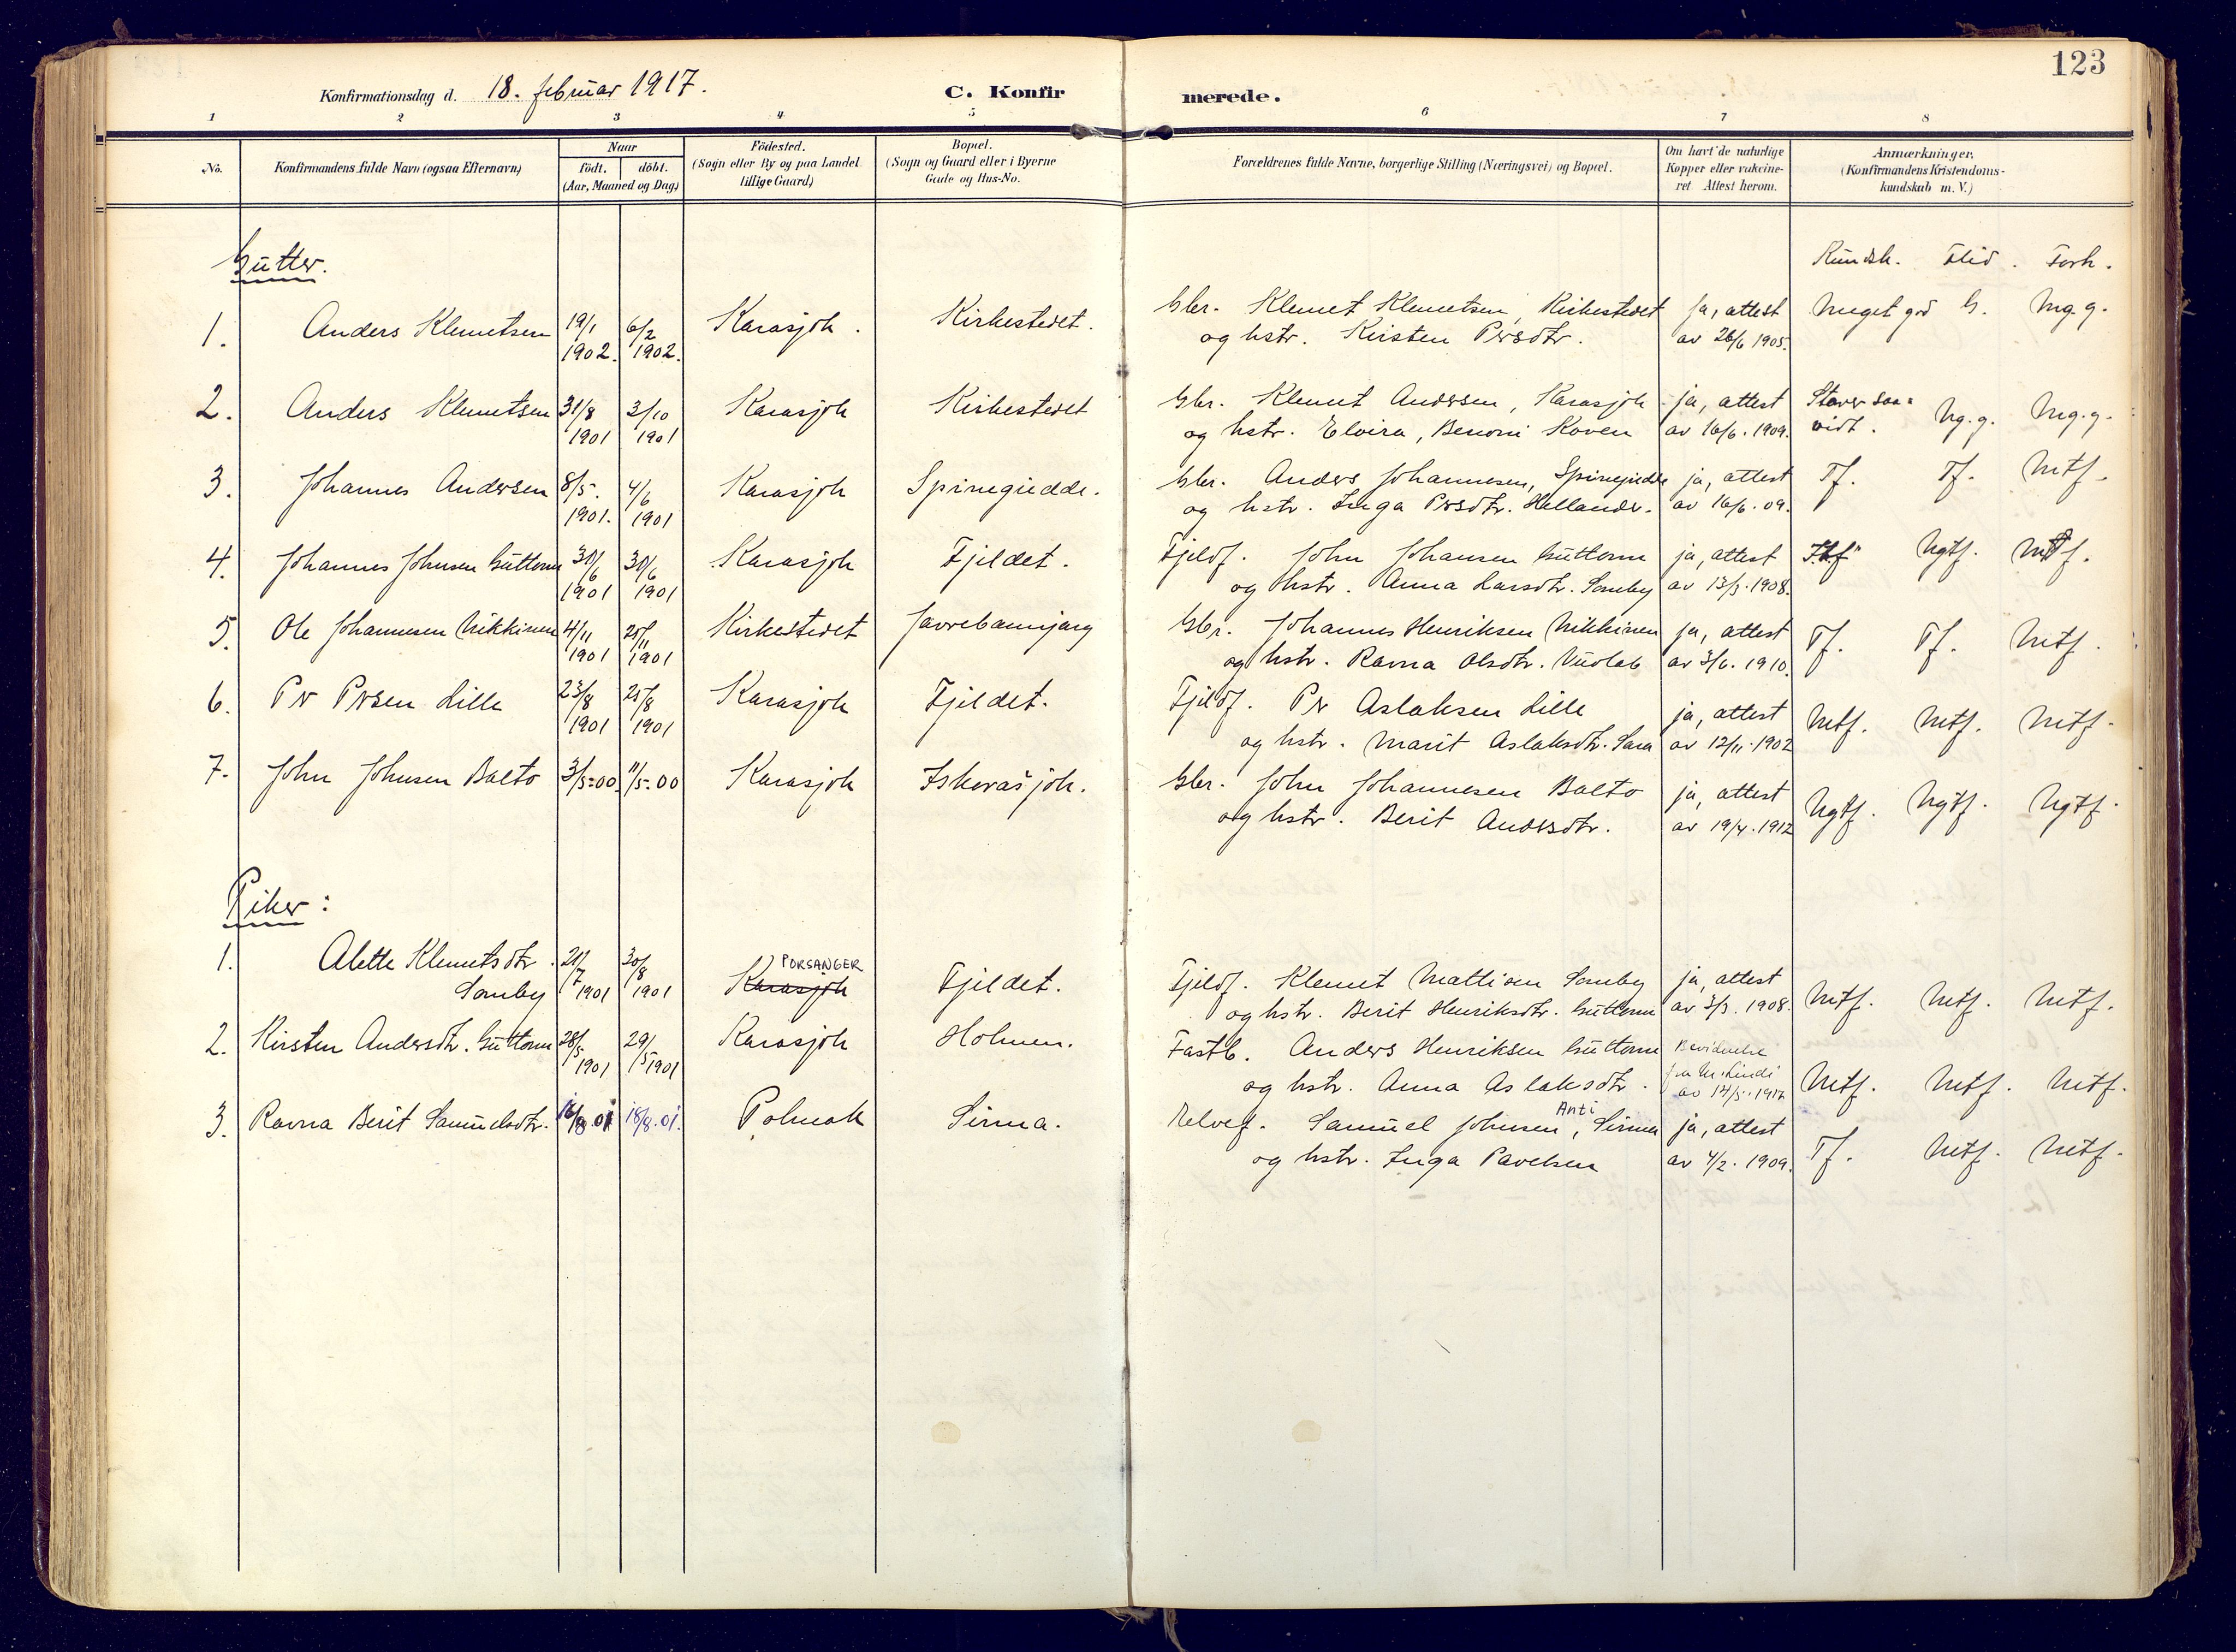 123
Konfirmationsdag d. 18. februar 1917.
C. Konfirmerede.
1 2 3 4 5 6 7 8
No.
Konfirmandens fulde Navn (ogsaa Efternavn)
Naar
födt. döbt.
(Aar, Maaned og Dag)
Födested.
(Sogn eller By og paa Landet
tillige Gaard)
Bopæl.
(Sogn og Gaard eller i Byerne
Gade og Hus-No.
Forældrenes fulde Navne, borgerlige Stilling (Næringsvei) og Bopæl.
Om havt de naturlige
Kopper eller vakcine-
ret Attest herom.
Anmærkninger,
(Konfirmandens Kristendoms-
kundskab m. V.)
Gutter.
Kundsk. Flid. Forh.
1. Anders Klemetsen 19/1 1902. 6/2 1902. Karasjok. Kirkestedet. Gbr. Klemet Klemetsen, Kirkestedet ja, attest Meget god G. Mg.g.
og hstr. Kirsten Prsdtr. av 26/6 1905.
2. Anders Klemetsen 31/8 1901 3/10 1901 Karasjok Kirkestedet Gbr. Klemet Andersen, Karasjok ja, attest Staver saa-
og hstr. Elvira, Benoni Koven av 16/6. 1909. vidt. Ng.g. Mg.g.
3. Johannes Andersen 8/5. 1901. 4/6 1901 Karasjok Spinegiedde. Gbr. Anders Johannesen, Spinegiedde ja, attest Tf. Tf. Mtf.
og hstr. Inga Prsdtr. Hellander. av 16/6. 09.
4. Johannes Johnsen Guttorm 30/6 1901 30/6 1901 Karasjok Fjeldet. Fjeldf. John Johansen Guttorm ja, attest Ngtf. Mtf.
og hstr. Anna Larsdtr. Somby av 13/3. 1908.
5. Ole Johannesen Nikkinen 4/11 1901 25/11 1901 Kirkestedet Javrebainjarg Gbr. Johannes Henriksen Nikkinen ja, attest Tf. Tf. Mtf.
og hstr. Ravna Olsdtr. Vuolab av 3/6. 1910.
6. Pr Prsen Lille 23/8 1901 25/8 1901 Karasjok Fjeldet. Fjeldf. Pr Aslaksen Lille ja, attest Mtf. Mtf. Mtf.
og hstr. Marit Aslaksdtr. Sara av 12/11. 1902
7. John Johnsen Balto 3/5-00. 11/5-00 Karasjok Iskorašjok. Gbr. John Johannesen Balto ja, attest Ngtf. Ngtf. Ngtf.
og hstr. Berit Andersdtr. av 19/4. 1912
Piker:
1. Alette Klemetsdtr. 20/7 1901 30/8 1901 PORSANGER
Somby Karasjok Fjeldet. Fjeldf. Klemet Mattisen Somby ja, attest Mtf. Mtf. Mtf.
og hstr. Berit Henriksdtr. Guttorm av 3/3. 1908.
2. Kirsten Andersdtr. Guttorm 28/5 1901 29/5 1901 Karasjok Holmen. Fastb. Anders Henriksen Guttorm Bevidnelse
og hstr. Anna Aslaksdtr. av 14/5. 1912 Mtf. Mtf. Mtf.
3. Ravna Berit Samuelsdtr. 16/8.01 18/8.01. Polmak Sirma. Elvef. Samuel Johnsen Anti, Sirma ja, attest Tf. Mtf. Mtf.
og hstr. Inga Pavelsen av 4/2. 1909.